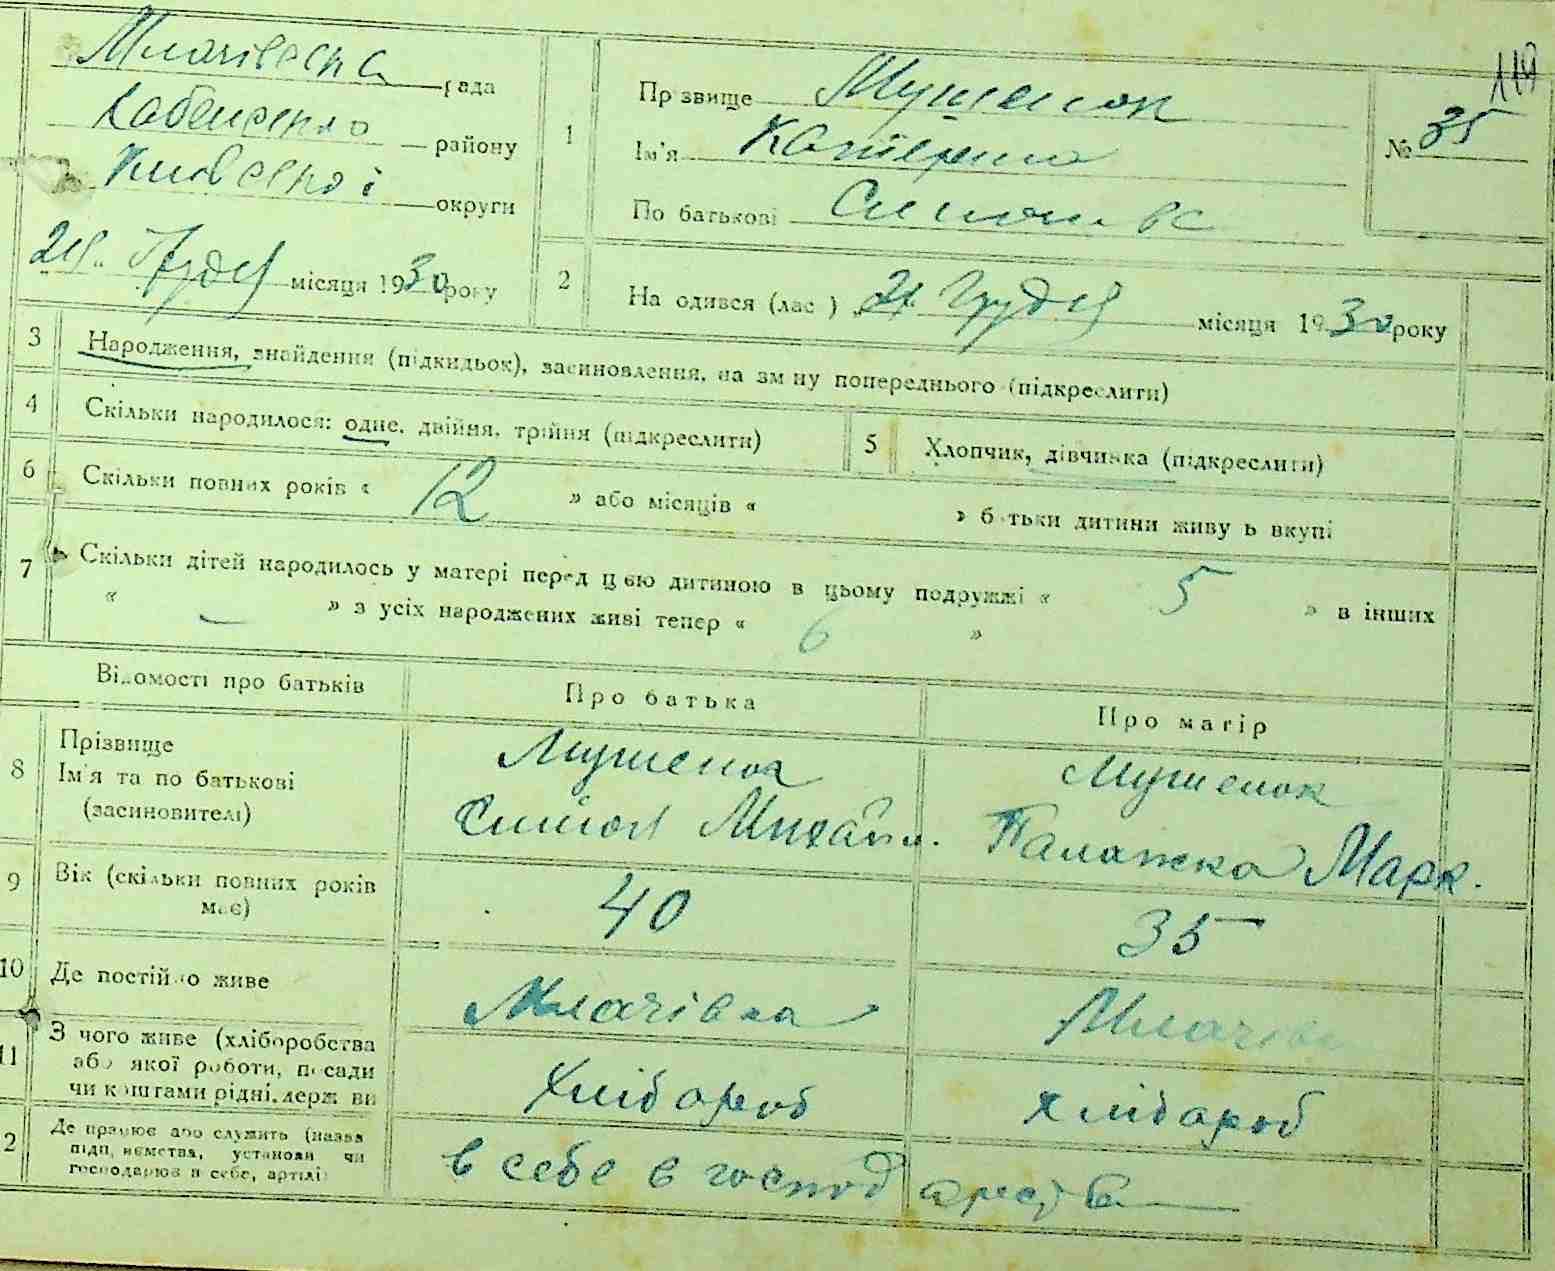 Млачівська рада
Хабенсько району
Київської округи
Грудня місяця 1930 року
1
Прізвище Мушенок
Ім'я Катерина
По батькові Симонівс
№ 35
2
На одився (лас ) 21 Грудня місяця 1930 року
3 Народження, знайдення (підкидьок), засиновлення, на зм ну попереднього (підкреслити)
4 Скільки народилося: одне, двійня, трійня (підкреслити)
5 Хлопчик, дівчинка (підкреслити)
6 Скільки повних років « 12 » або місяців « » б тьки дитини живу ь вкупі
7 Скільки дітей народилось у матері перед цією дитиною в цьому подружжі « 5 » в інших
« — » з усіх народжених живі тепер « 6 »
Відомості про батьків
Про батька
Про матір
8 Прізвище
Ім'я та по батькові
(засиновителі)
Мушенок
Симон Михайл.
Мушенок
Палажка Марк.
9 Вік (скільки повних років
має)
40
35
10 Де постійно живе
Млачівка
Млачівк
11 З чого живе (хліборобства
або якої роботи, посади
чи коштами рідні, держ ви
Хлібороб
Хлібороб
2 Де працює або служить (назва
підп иємства, установи чи
господарює в себе, артілі)
в себе в господарстві